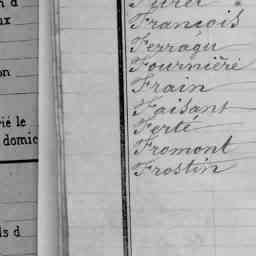 François
Ferragu
Fournière
Frain
Faisant
Ferté
Fromont
Frostin
on
ié le
domic
ls d